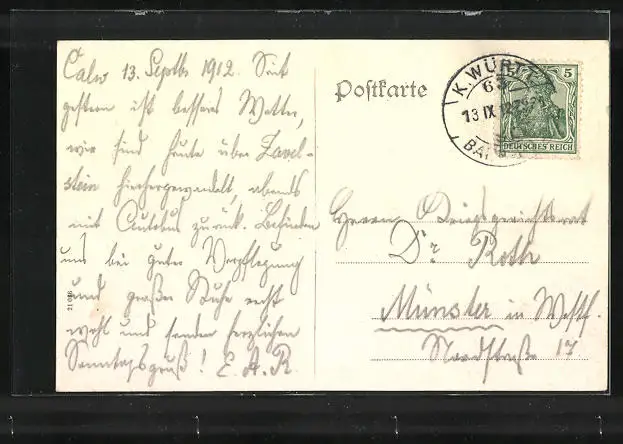 Calw 13. Septb. 1912. Seit
gestern ist besseres Wetter,
wir sind heute über Zavel-
stein hierhergewandelt, abends
mit Autobus zurück. Befinden
uns bei guter Verpflegung
und großer Ruhe recht
wohl und senden herzlichen
Sonntagsgruß! E. A. R.
Postkarte
K. WÜRTT.
63
13 IX
BA
5
DEUTSCHES REICH
Herrn Kriegsgerichtsrat
Dr. Roth
Münster in Westf.
Nordstraße 17